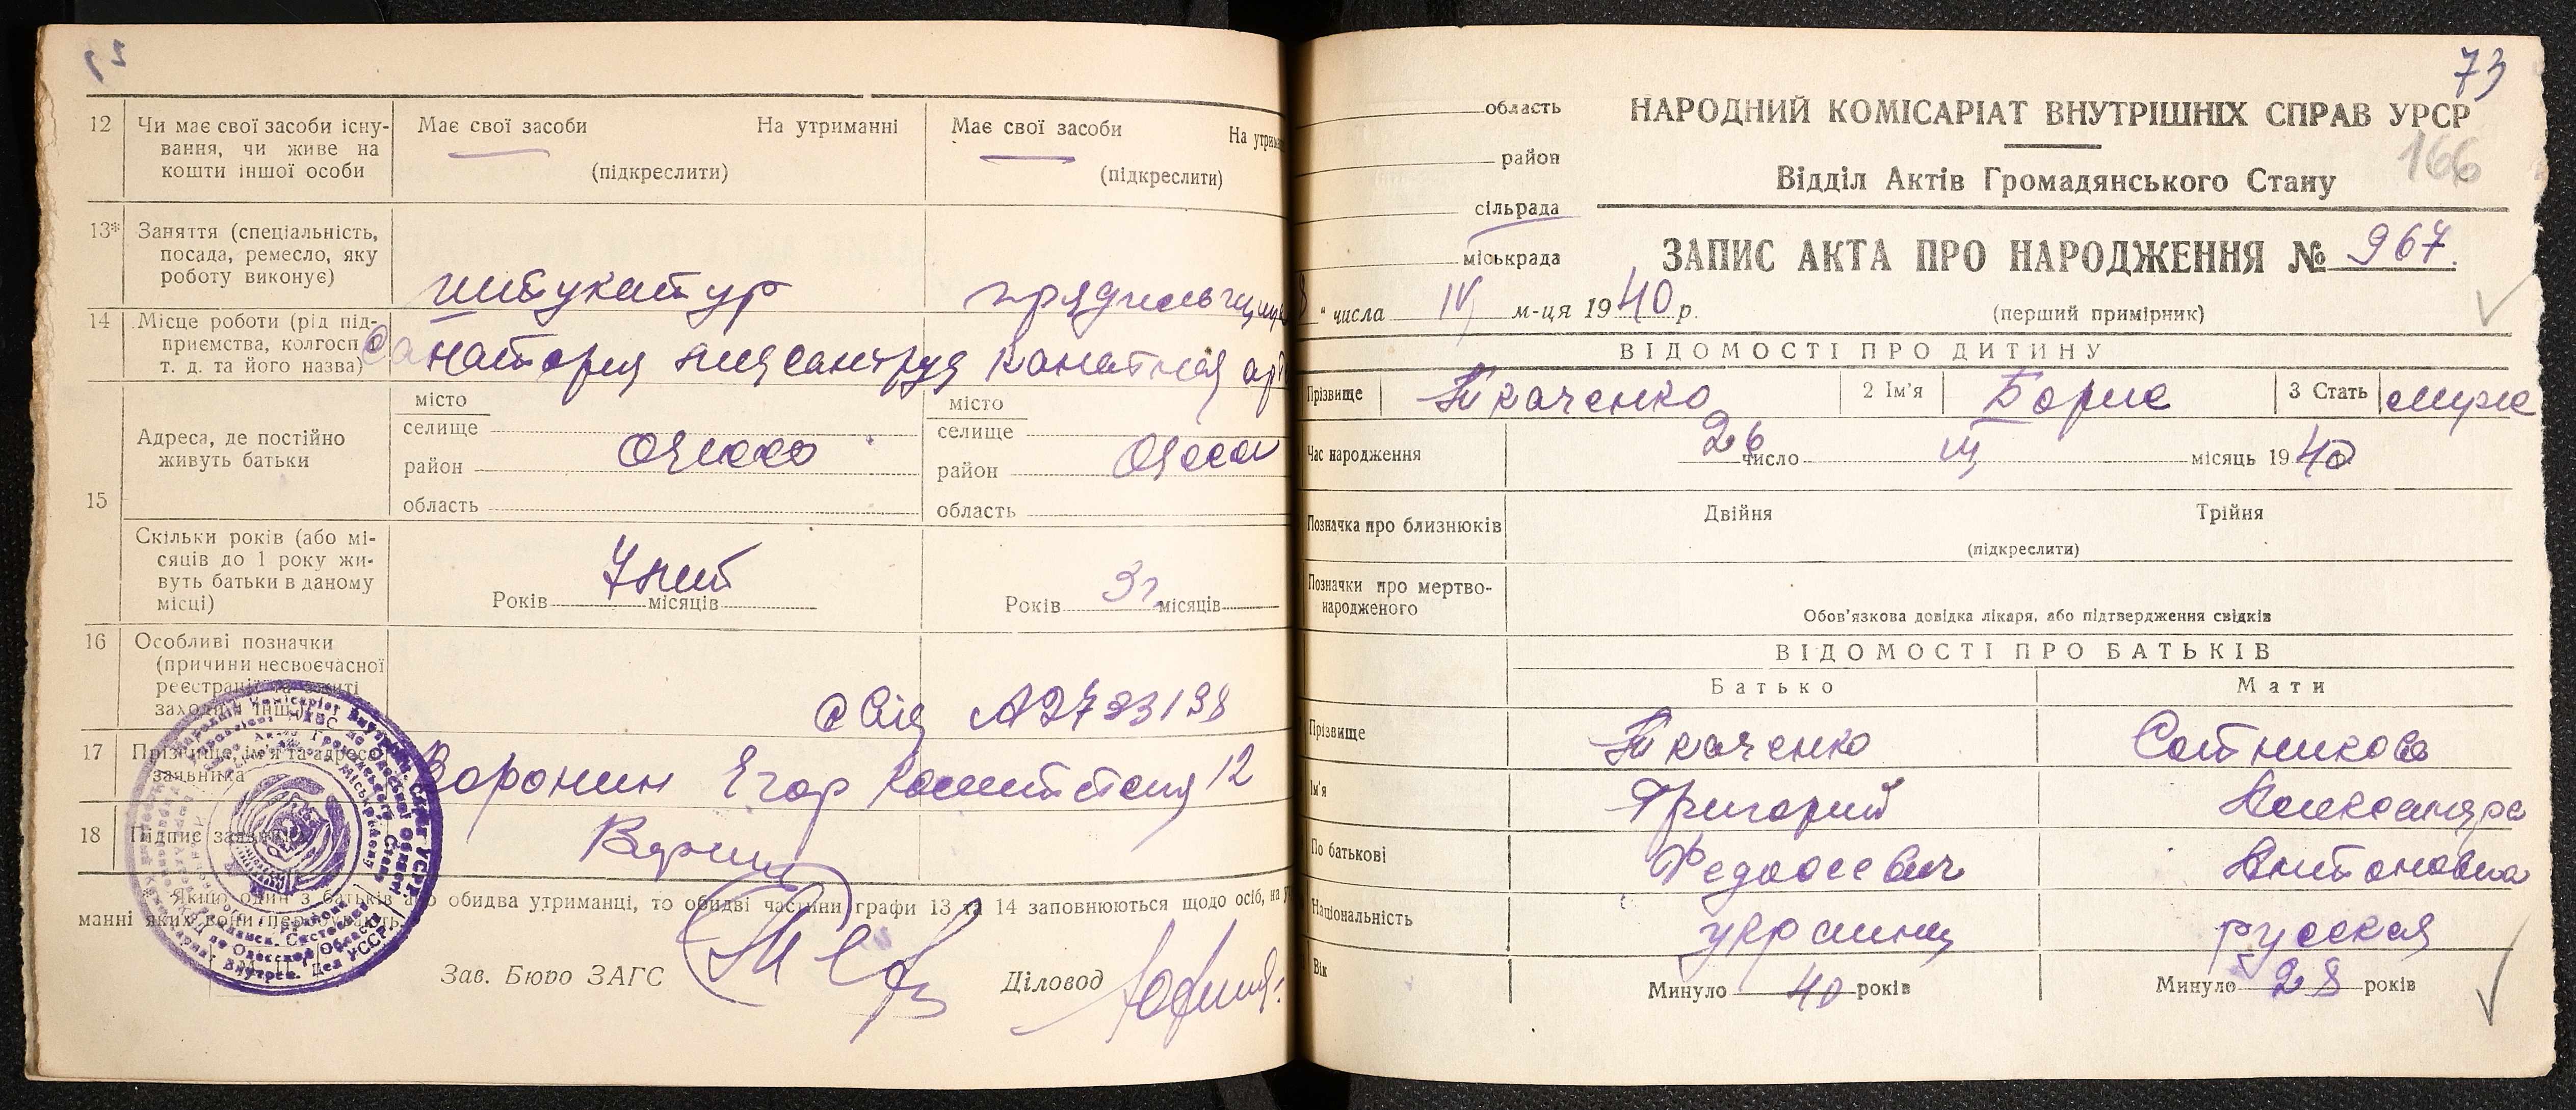 12 Чи має свої засоби існу-
вання, чи живе на
кошти іншої особи
Має свої засоби На утриманні
(підкреслити)
Має свої засоби
(підкреслити)
13* Заняття (спеціальність,
посада, ремесло, яку
роботу виконує)
штукатур
прядильщица
14 Місце роботи (рід під-
приємства, колгосп і
т. д. та його назва)
Санатория
Канатная
15 Адреса, де постійно
живуть батьки
місто
селище
район Одесса
область
місто
селище
район Одесса
область
Скільки років (або мі-
сяців до 1 року жи-
вуть батьки в даному
місці)
7 лет
Років місяців
3 г
Років місяців
16 Особливі позначки
(причини несвоєчасної
реєстрації та вжиті
заходи й інш.)
17 Прізвище, ім'я та адреса
заявника
Воронин Егор 12
18 Підпис заявника
Якщо один з батьків або обидва утриманці, то обидві частини графи 13 та 14 заповнюються щодо осіб, на
манні яких вони перебувають.
Зав. Бюро ЗАГС Діловод
73
166
область
район
сільрада
міськрада
НАРОДНИЙ КОМІСАРІАТ ВНУТРІШНІХ СПРАВ УРСР
Відділ Актів Громадянського Стану
ЗАПИС АКТА ПРО НАРОДЖЕННЯ № 967.
" числа IV м-ця 1940 р.
(перший примірник)
ВІДОМОСТІ ПРО ДИТИНУ
Прізвище Ткаченко 2 Ім'я Борис 3 Стать муж
Час народження 26 число III місяць 1940
Позначка про близнюків Двійня Трійня
(підкреслити)
Позначки про мертво-
народженого
Обов'язкова довідка лікаря, або підтвердження свідків
ВІДОМОСТІ ПРО БАТЬКІВ
Батько Мати
Прізвище Ткаченко Сотникова
Ім'я Григорий Александра
По батькові Федосеевич Антоновна
Національність украинец русская
Вік Минуло 40 років Минуло 28 років